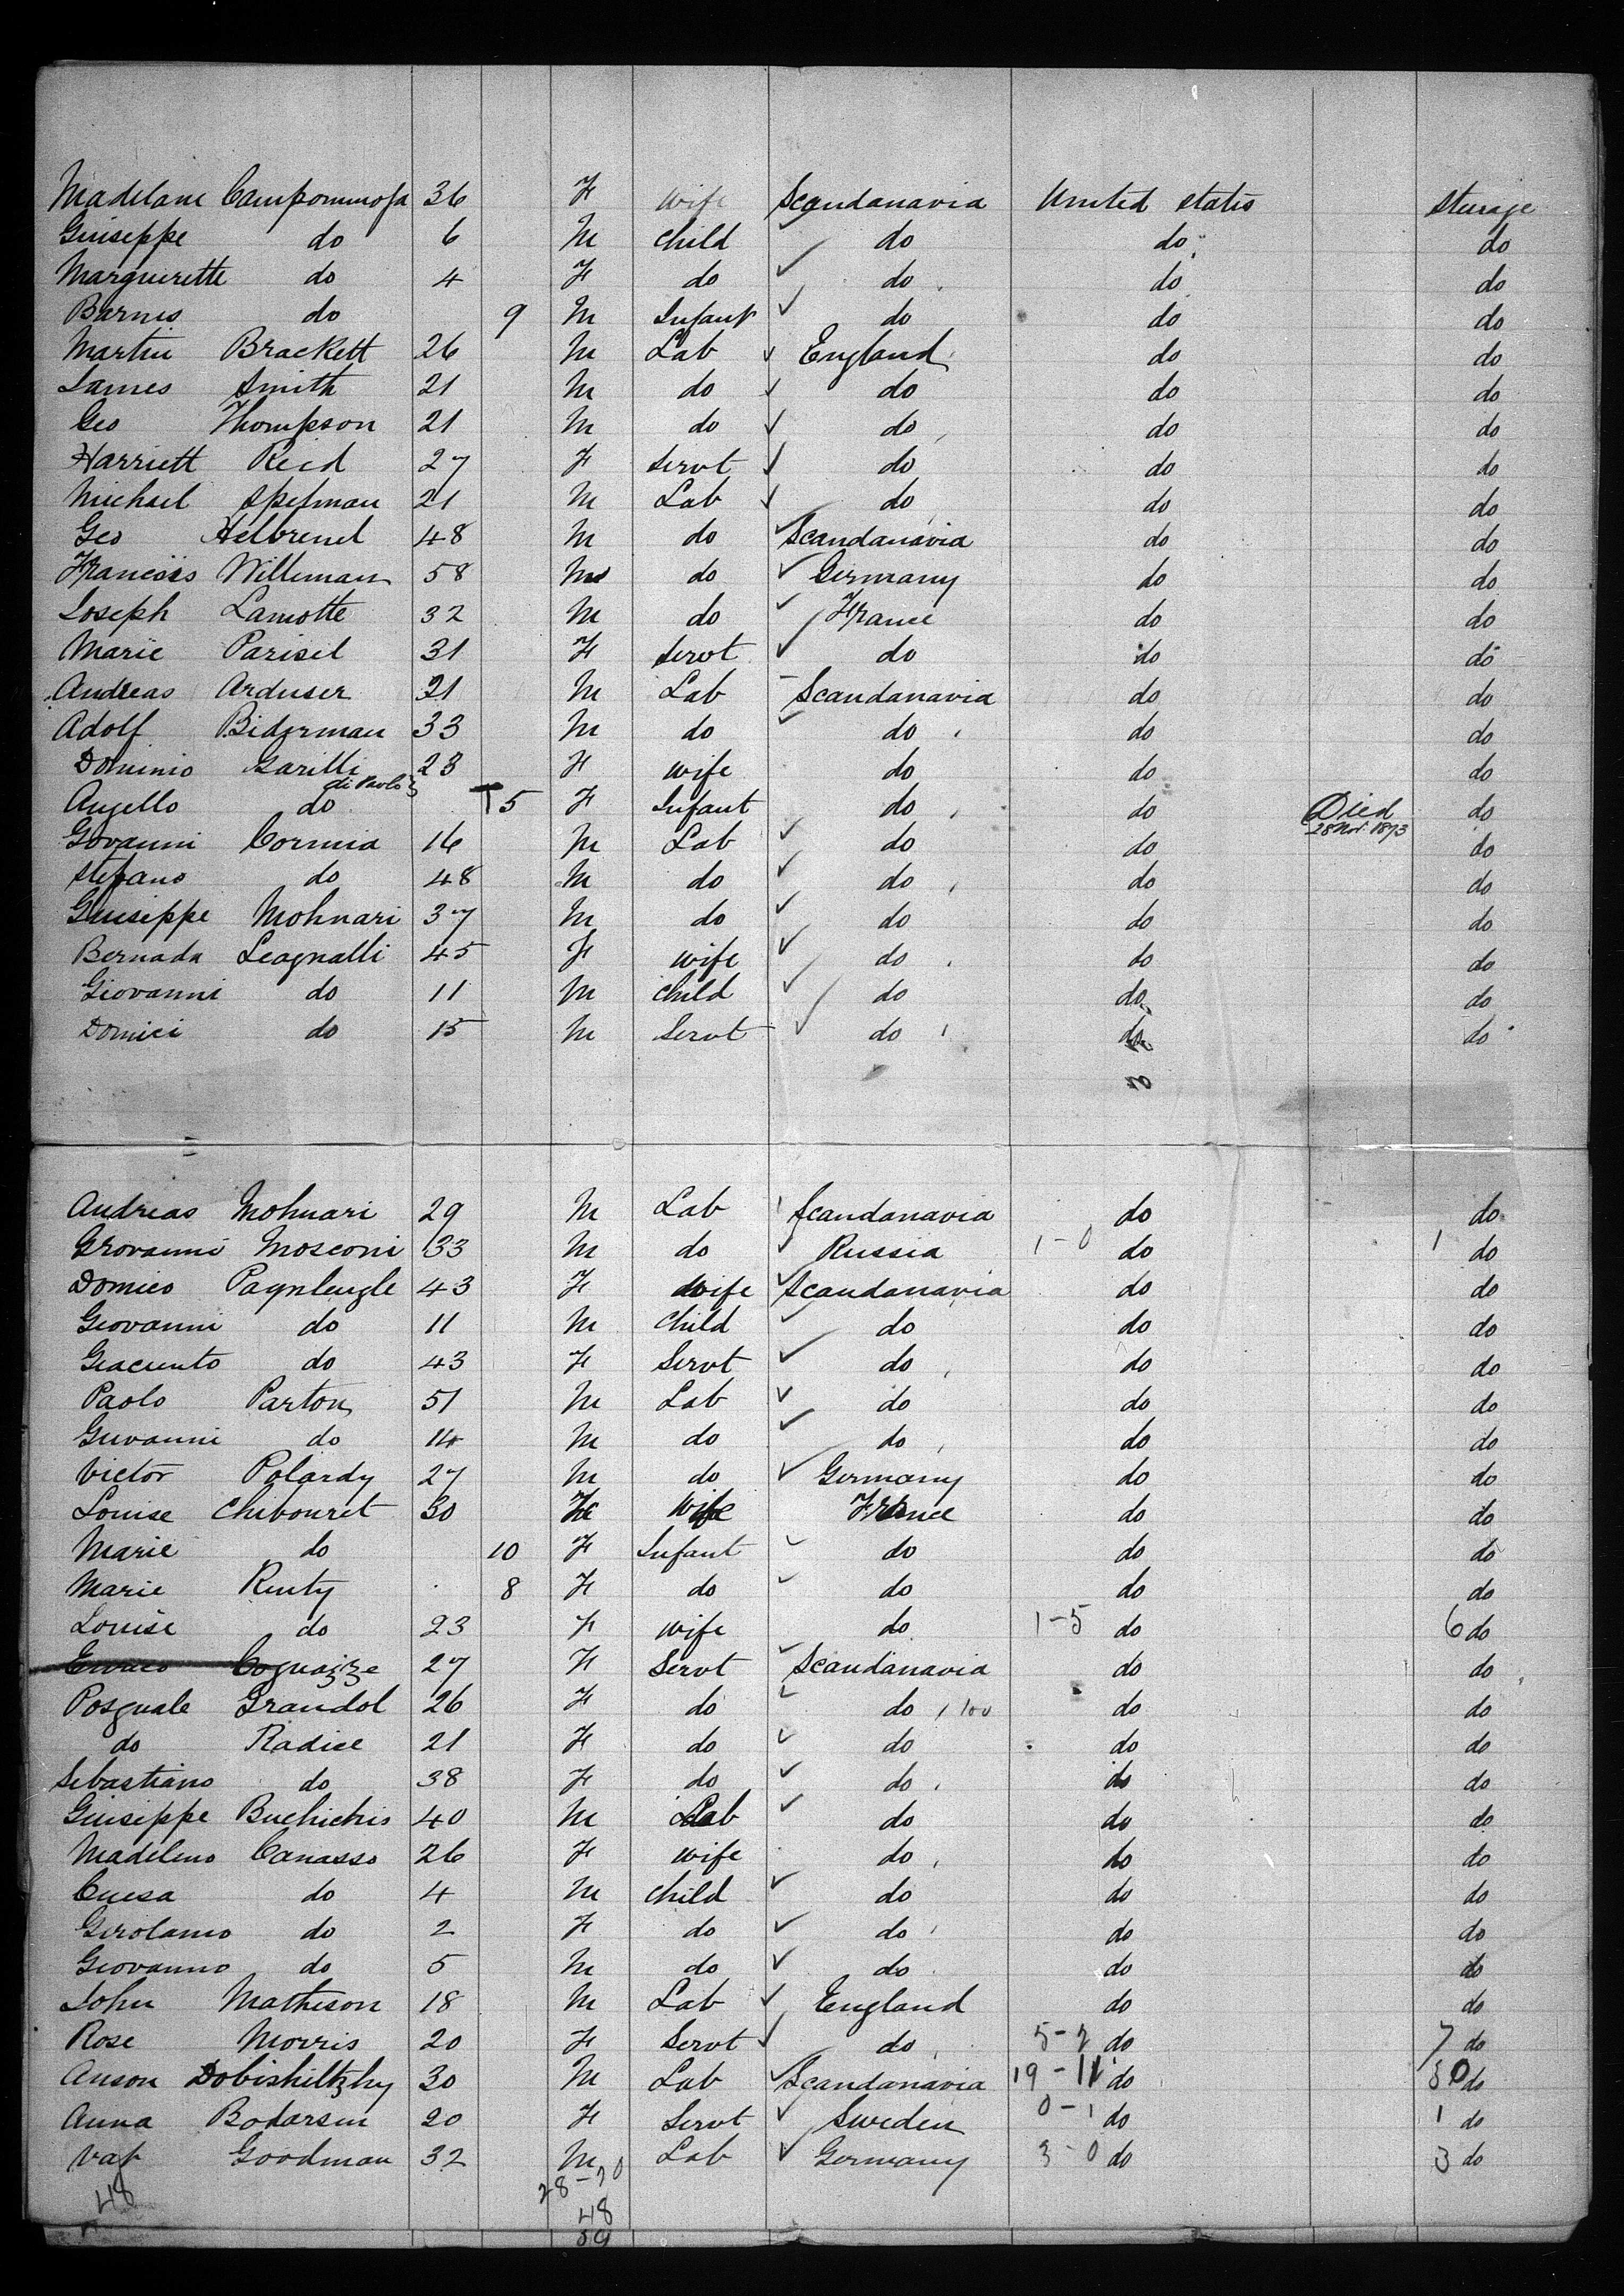 Madelane Campommofa 36 F wife Scandanavia United States Sturage
Guiseppe do 6 M child do do do
Marguerette do 4 F do do do do
Barnes do 9 M Infant do do do
Martin Brackett 26 M Lab England do do
James Smith 21 M do do do do
Geo Thompson 21 M do do do do
Harriett Reid 27 F Servt do do do
Michael Spelman 21 M Lab do do do
Geo Helbrend 48 M do Scandanavia do do
Francois Willeman 58 M do Germany do do
Joseph Lamotte 32 M do France do do
Marie Parisel 31 F Servt do do do
Andreas Arduser 21 M Lab Scandanavia do do
Adolf Biderman 33 M do do do do
Dominio Garilli 23 F wife do do do
di Paolo
Angello do T 5 F Infant do do Died do
28 Nov. 1893
Govanni Cormia 16 M Lab do do do
Stefano do 48 M do do do do
Guiseppe Mohnari 37 M do do do do
Bernada Leagnalli 45 F wife do do do
Giovanni do 11 M child do do do
Domici do 15 M Servt do do do
do
Andreas Mohnari 29 M Lab Scandanavia do do
Grovanni Mosconi 33 M do Russia 1-0 do 1 do
Domico Paynlengle 43 F wife Scandanavia do do
Giovanni do 11 M child do do do
Giacunto do 43 F Servt do do do
Paolo Parton 51 M Lab do do do
Guvanni do 14 M do do do do
Victor Polardy 27 M do Germany do do
Louise Chivouret 30 F Wife France do do
Marie do 10 F Infant do do do
Marie Renty 8 F do do do do
Louise do 23 F wife do 1-5 do 6 do
Enrico Cognaizze 27 F Servt Scandanavia do do
Posguale Grandol 26 F do do 100 do do
do Radice 21 F do do do do
Sebastiano do 38 F do do do do
Guiseppe Buchichis 40 M Lab do do do
Madeleno Canasso 26 F wife do do do
Cuesa do 4 M child do do do
Girolamo do 2 F do do do do
Giovanno do 5 M do do do do
John Matheson 18 M Lab England do do
Rose Morris 20 F Servt do 5-2 do 7 do
Anson Dobishiltzhy 30 M Lab Scandanavia 19-11 do 30 do
Anna Bodarsen 20 F Servt Sweden 0-1 do 1 do
Vap Goodman 32 M Lab Germany 3-0 do 3 do
48 28-20
48
59